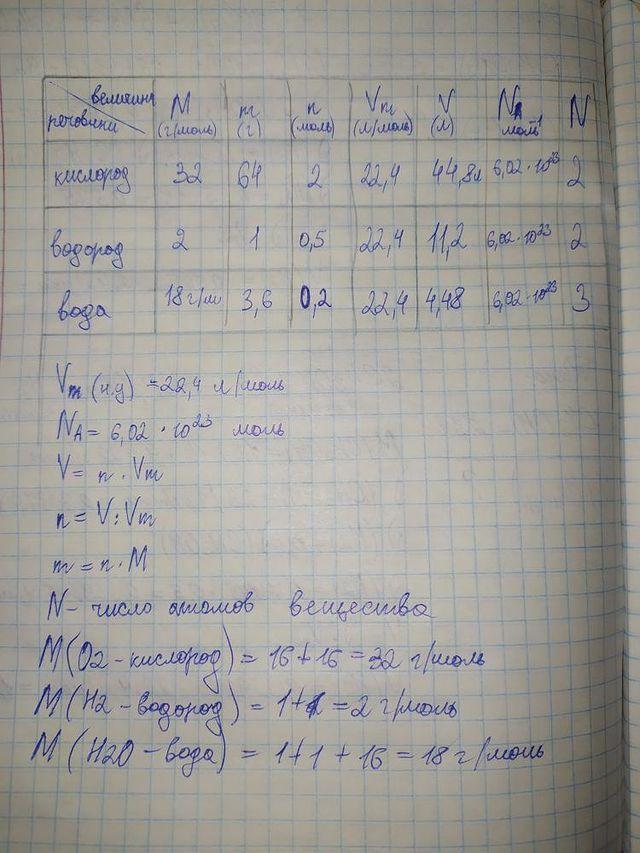 величини M m n Vm V NA N
речовини (г/моль) (г) (моль) (л/моль) (л) моль⁻¹
кислород 32 64 2 22,4 44,8л 6,02·10²³ 2
водород 2 1 0,5 22,4 11,2 6,02·10²³ 2
вода 18 г/м 3,6 0,2 22,4 4,48 6,02·10²³ 3
Vm (н.у) = 22,4 л/моль
NA = 6,02 · 10²³ моль
V = n · Vm
n = V : Vm
m = n · M
N - число атомов вещества
M(O2 - кислород) = 16 + 16 = 32 г/моль
M(H2 - водород) = 1 + 1 = 2 г/моль
M(H2O - вода) = 1 + 1 + 16 = 18 г/моль